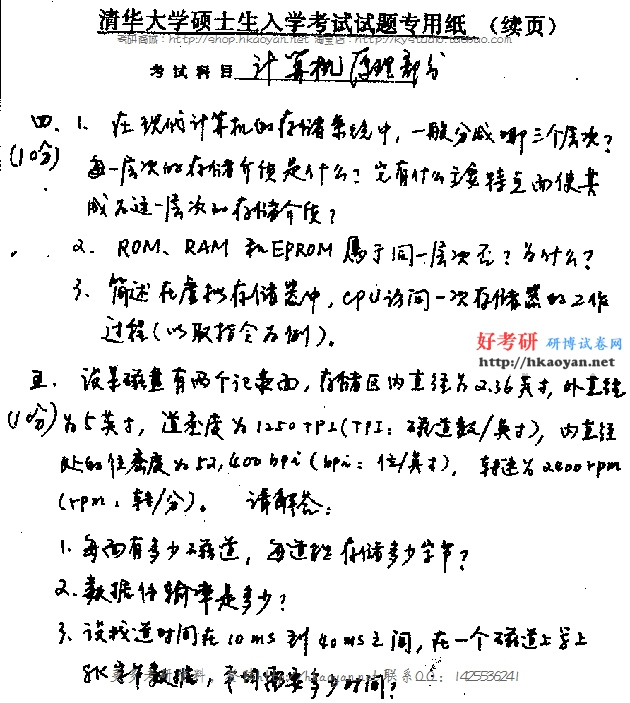 清华大学硕士生入学考试试题专用纸 (续页)
考研商城：http://shop.hkaoyan.net 淘宝店：http://ky4study.taobao.com
考试科目 计算机原理部分
四、1. 在现代计算机的存储系统中，一般分成哪三个层次？
(10分) 每一层次的存储介质是什么？它有什么主要特点而使其
成为这一层次的存储介质？
2. ROM、RAM 和EPROM 属于同一层次否？为什么？
3. 简述在虚拟存储器中，CPU访问一次存储器的工作
过程（以取指令为例）。
好考研 研博试卷网
http://hkaoyan.net
五、设某磁盘有两个记录面，存储区内直径为2.36英寸，外直径
(10分) 为5英寸，道密度为1250TPI(TPI：磁道数/英寸)，内直径
处的位密度为52,400bpi（bpi：位/英寸），转速为2400rpm
(rpm：转/分)。 请解答：
1. 每面有多少磁道，每道能存储多少字节？
2. 数据传输率是多少？
3. 设找道时间在10ms到40ms之间，在一个磁道上写上
8K字节数据，平均需要多少时间？
联系QQ：1425536241